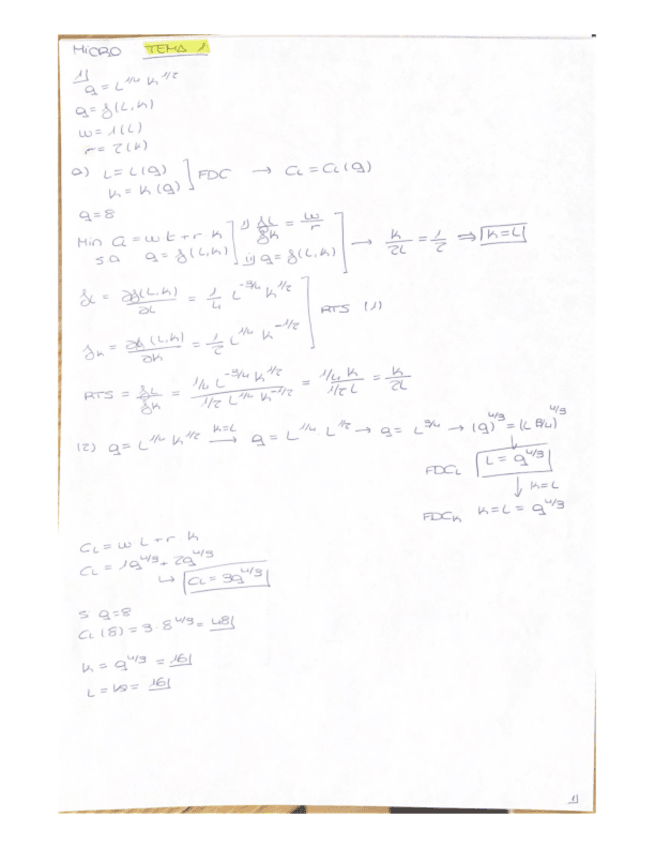 MICRO TEMA 1
1)
q = L^1/4 K^1/2
q = f(L,K)
w = 1 (L)
r = 2 (K)
a) L = L(q) ] FDC → CL = CL(q)
K = K(q)
q = 8
Min CL = w L + r K ] i) fL/fK = w/r ] → K/2L = 1/2 ⇒ K = L
s a q = f(L,K) ii) q = f(L,K)
fL = ∂f(L,K)/∂L = 1/4 L^-3/4 K^1/2 ] RTS (1)
fK = ∂f(L,K)/∂K = 1/2 L^1/4 K^-1/2
RTS = fL/fK = 1/4 L^-3/4 K^1/2 / 1/2 L^1/4 K^-1/2 = 1/4 K / 1/2 L = K/2L
(2) q = L^1/4 K^1/2 K=L → q = L^1/4 L^1/2 → q = L^3/4 → (q)^4/3 = (L^3/4)^4/3
FDC_L L = q^4/3
↓ K=L
FDC_K K = L = q^4/3
CL = w L + r K
CL = 1q^4/3 + 2q^4/3
↳ CL = 3q^4/3
s q = 8
CL (8) = 3 · 8^4/3 = 48
K = q^4/3 = 16
L = K = 16
1